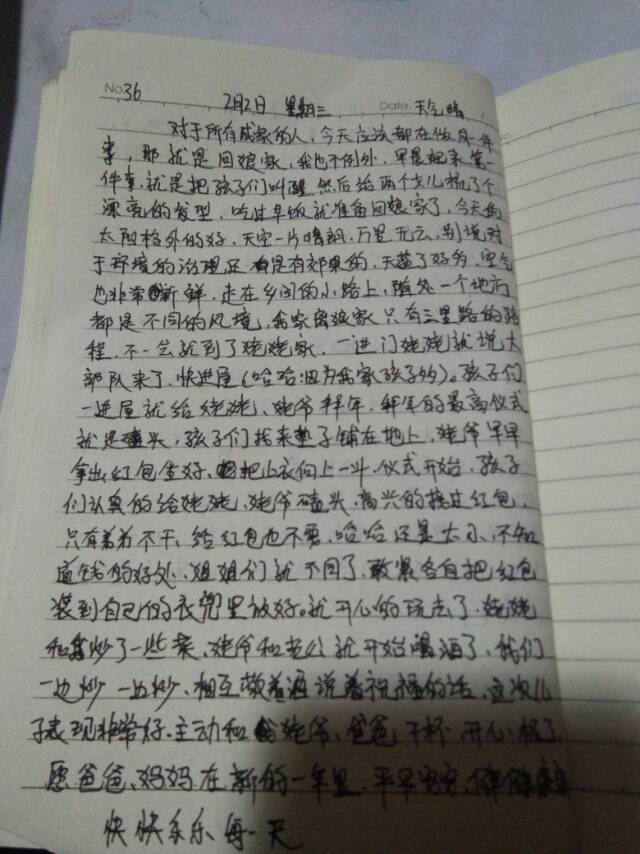 No. 36
2月2日 星期三 Date. 天气晴
对于所有成家的人，今天应该都在做同一件
事，那就是回娘家，我也不例外，早晨起来第一
件事，就是把孩子们叫醒 然后给两个女儿梳了个
漂亮的发型，吃过早饭就准备回娘家了，今天的
太阳格外的好，天空一片晴朗，万里无云，别说对
于环境的治理还是有效果的，天蓝了好多，空气
也非常新鲜，走在乡间的小路上，随处一个地方
都是不同的风境，我家离娘家只有三里路的路
程，不一会就到了姥姥家，一进门姥姥就说大
部队来了，快进屋（哈哈因为我家孩子多）。孩子们
一进屋就给姥姥、姥爷拜年，拜年的最高仪式
就是磕头，孩子们找来垫子铺在地上，姥爷早早
拿出红包坐好，把上衣向上一斗，仪式开始，孩子
们认真的给姥姥、姥爷磕头，高兴的接过红包，
只有弟弟不干，给红包也不要，哈哈还是太小，不知
道钱的好处，姐姐们就不同了，敢紧各自把红包
装到自己的衣兜里放好。就开心的玩去了，姥姥
和我炒了一些菜、姥爷和老公就开始喝酒了，我们
一边炒一边炒、相互敬着酒说着祝福的话，这次儿
子表现非常好，主动和姥爷、爸爸干杯 开心极了
愿爸爸、妈妈在新的一年里，平平安安、健健康康
快快乐乐每一天